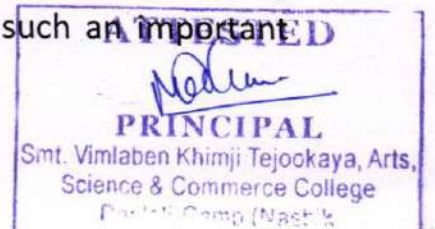 such an important
ATTESTED
PRINCIPAL
Smt. Vimlaben Khimji Tejookaya, Arts,
Science & Commerce College
Camp (Nashik